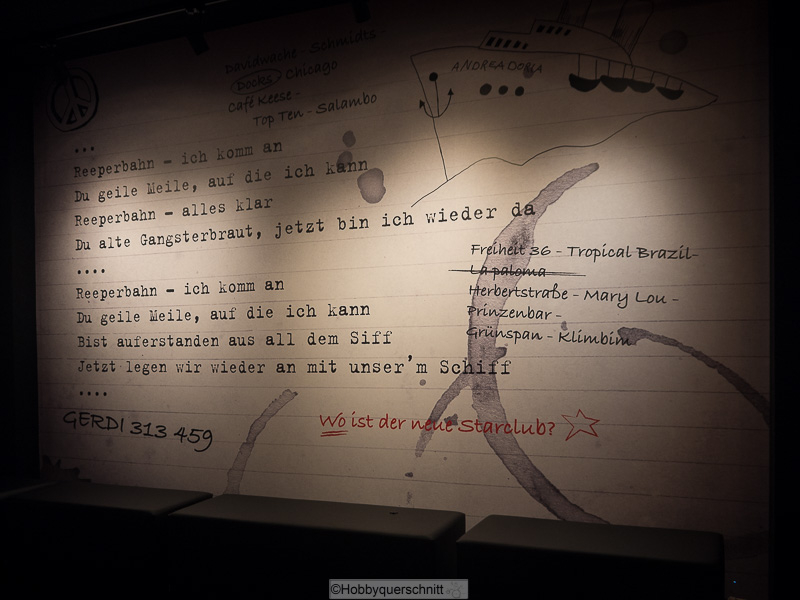 Davidwache - Schmidts -
Docks Chicago
Café Keese -
Top Ten - Salambo
ANDREA DORIA
...
Reeperbahn - ich komm an
Du geile Meile, auf die ich kann
Reeperbahn - alles klar
Du alte Gangsterbraut, jetzt bin ich wieder da
....
Reeperbahn - ich komm an
Du geile Meile, auf die ich kann
Bist auferstanden aus all dem Siff
Jetzt legen wir wieder an mit unser'm Schiff
....
Freiheit 36 - Tropical Brazil-
La paloma
Herbertstraße - Mary Lou -
Prinzenbar -
Grünspan - Klimbim
GERDI 313 459
Wo ist der neue Starclub?
©Hobbyquerschnitt